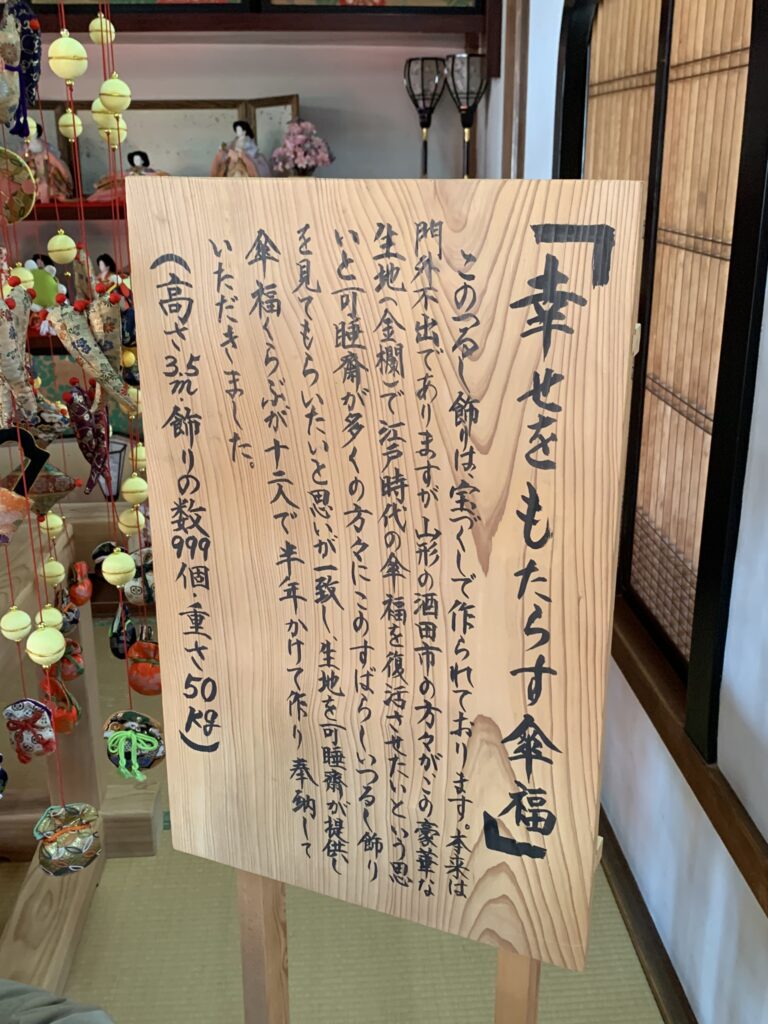 「幸せをもたらす傘福」
このつるし飾りは宝づくしで作られております。本来は
門外不出でありますが、山形の酒田市の方々が、この豪華な
生地(金襴)で江戸時代の傘福を復活させたいという思
いと可睡齋が多くの方々にこのすばらしいつるし飾り
を見てもらいたいと思いが一致し、生地を可睡齋が提供し
傘福くらぶが十二人で半年かけて作り奉納して
いただきました。
(高さ3.5m・飾りの数999個・重さ50kg)